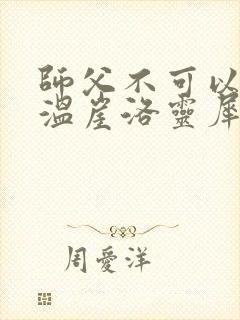 師父不可以
溫崖洛靈犀
周愛洋